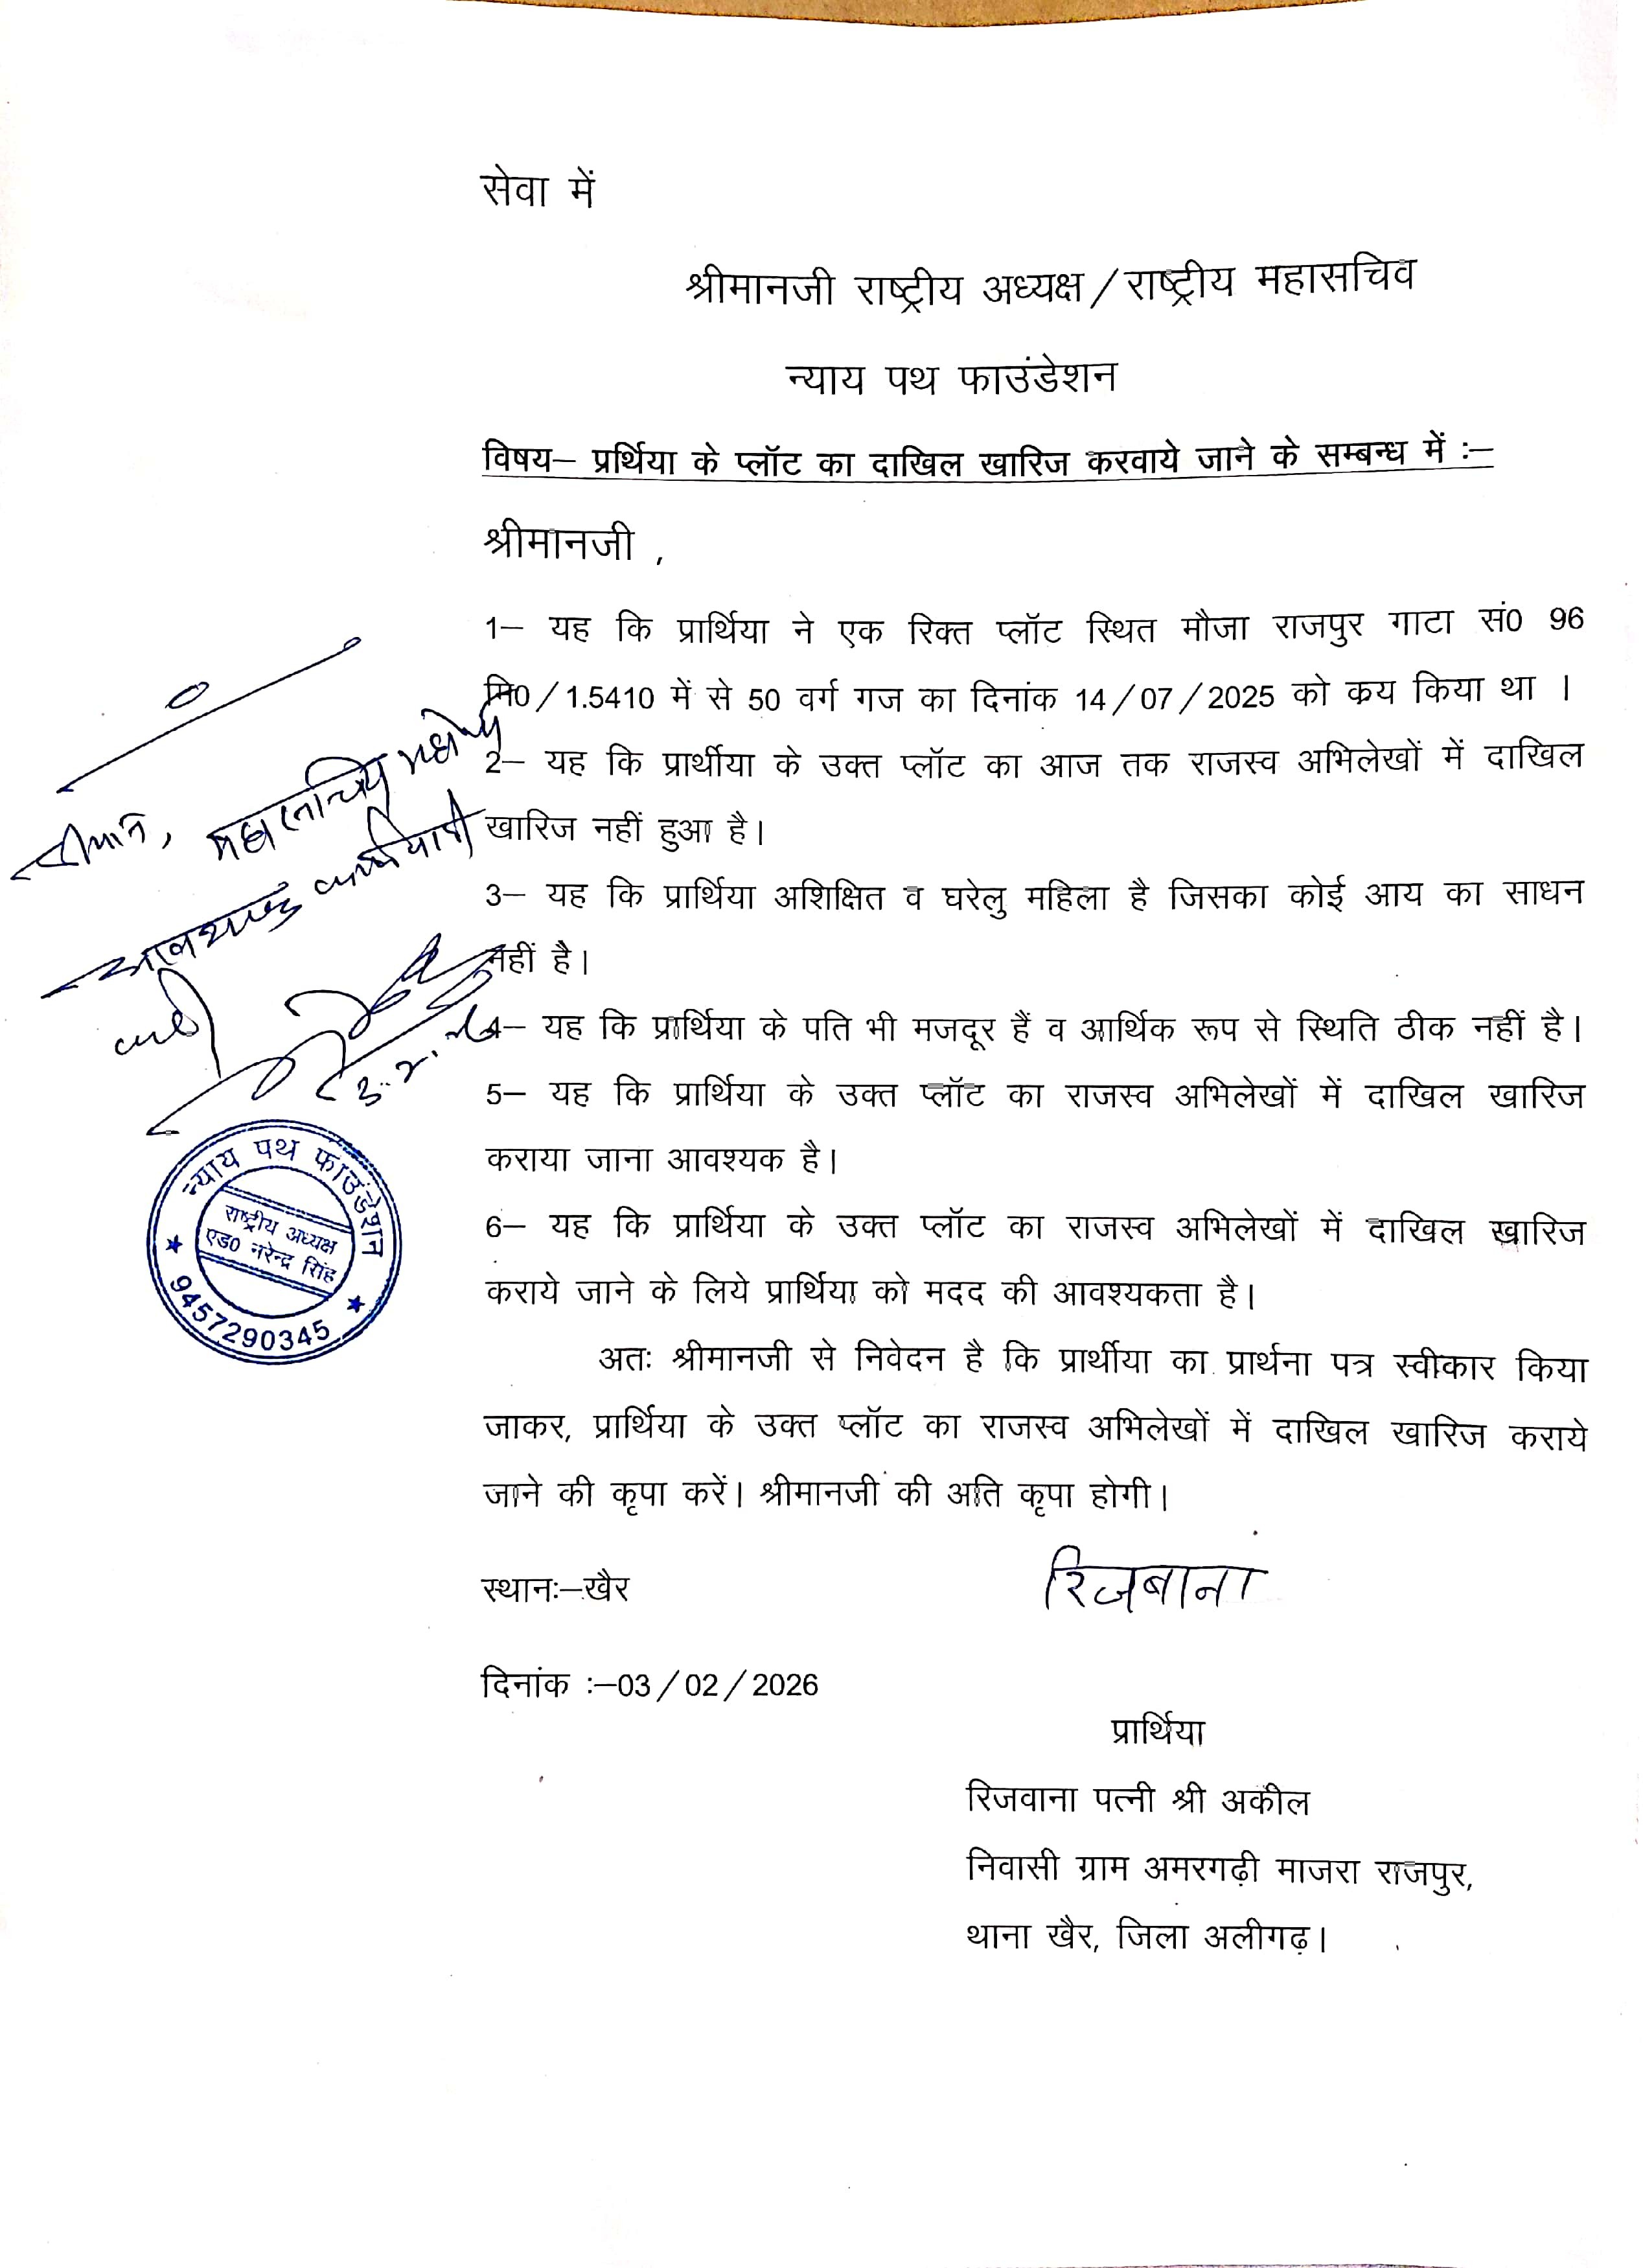 सेवा में
श्रीमानजी राष्ट्रीय अध्यक्ष/राष्ट्रीय महासचिव
न्याय पथ फाउंडेशन
विषय– प्रर्थिया के प्लॉट का दाखिल खारिज करवाये जाने के सम्बन्ध में :–
श्रीमानजी ,
1– यह कि प्रार्थिया ने एक रिक्त प्लॉट स्थित मौजा राजपुर गाटा सं0 96
मि0/1.5410 में से 50 वर्ग गज का दिनांक 14/07/2025 को क्रय किया था ।
2– यह कि प्रार्थीया के उक्त प्लॉट का आज तक राजस्व अभिलेखों में दाखिल
खारिज नहीं हुआ है।
3– यह कि प्रार्थिया अशिक्षित व घरेलु महिला है जिसका कोई आय का साधन
नहीं है।
4– यह कि प्रार्थिया के पति भी मजदूर हैं व आर्थिक रूप से स्थिति ठीक नहीं है।
5– यह कि प्रार्थिया के उक्त प्लॉट का राजस्व अभिलेखों में दाखिल खारिज
कराया जाना आवश्यक है।
6– यह कि प्रार्थिया के उक्त प्लॉट का राजस्व अभिलेखों में दाखिल खारिज
कराये जाने के लिये प्रार्थिया को मदद की आवश्यकता है।
अतः श्रीमानजी से निवेदन है कि प्रार्थीया का प्रार्थना पत्र स्वीकार किया
जाकर, प्रार्थिया के उक्त प्लॉट का राजस्व अभिलेखों में दाखिल खारिज कराये
जाने की कृपा करें। श्रीमानजी की अति कृपा होगी।
स्थानः–खैर
रिजबाना
दिनांक :–03/02/2026
प्रार्थिया
रिजवाना पत्नी श्री अकील
निवासी ग्राम अमरगढ़ी माजरा राजपुर,
थाना खैर, जिला अलीगढ़।
श्रीमान, महासचिव महोदय
आवश्यक कार्यवाही
करें
न्याय पथ फाउंडेशन
राष्ट्रीय अध्यक्ष
एड0 नरेन्द्र सिंह
9457290345